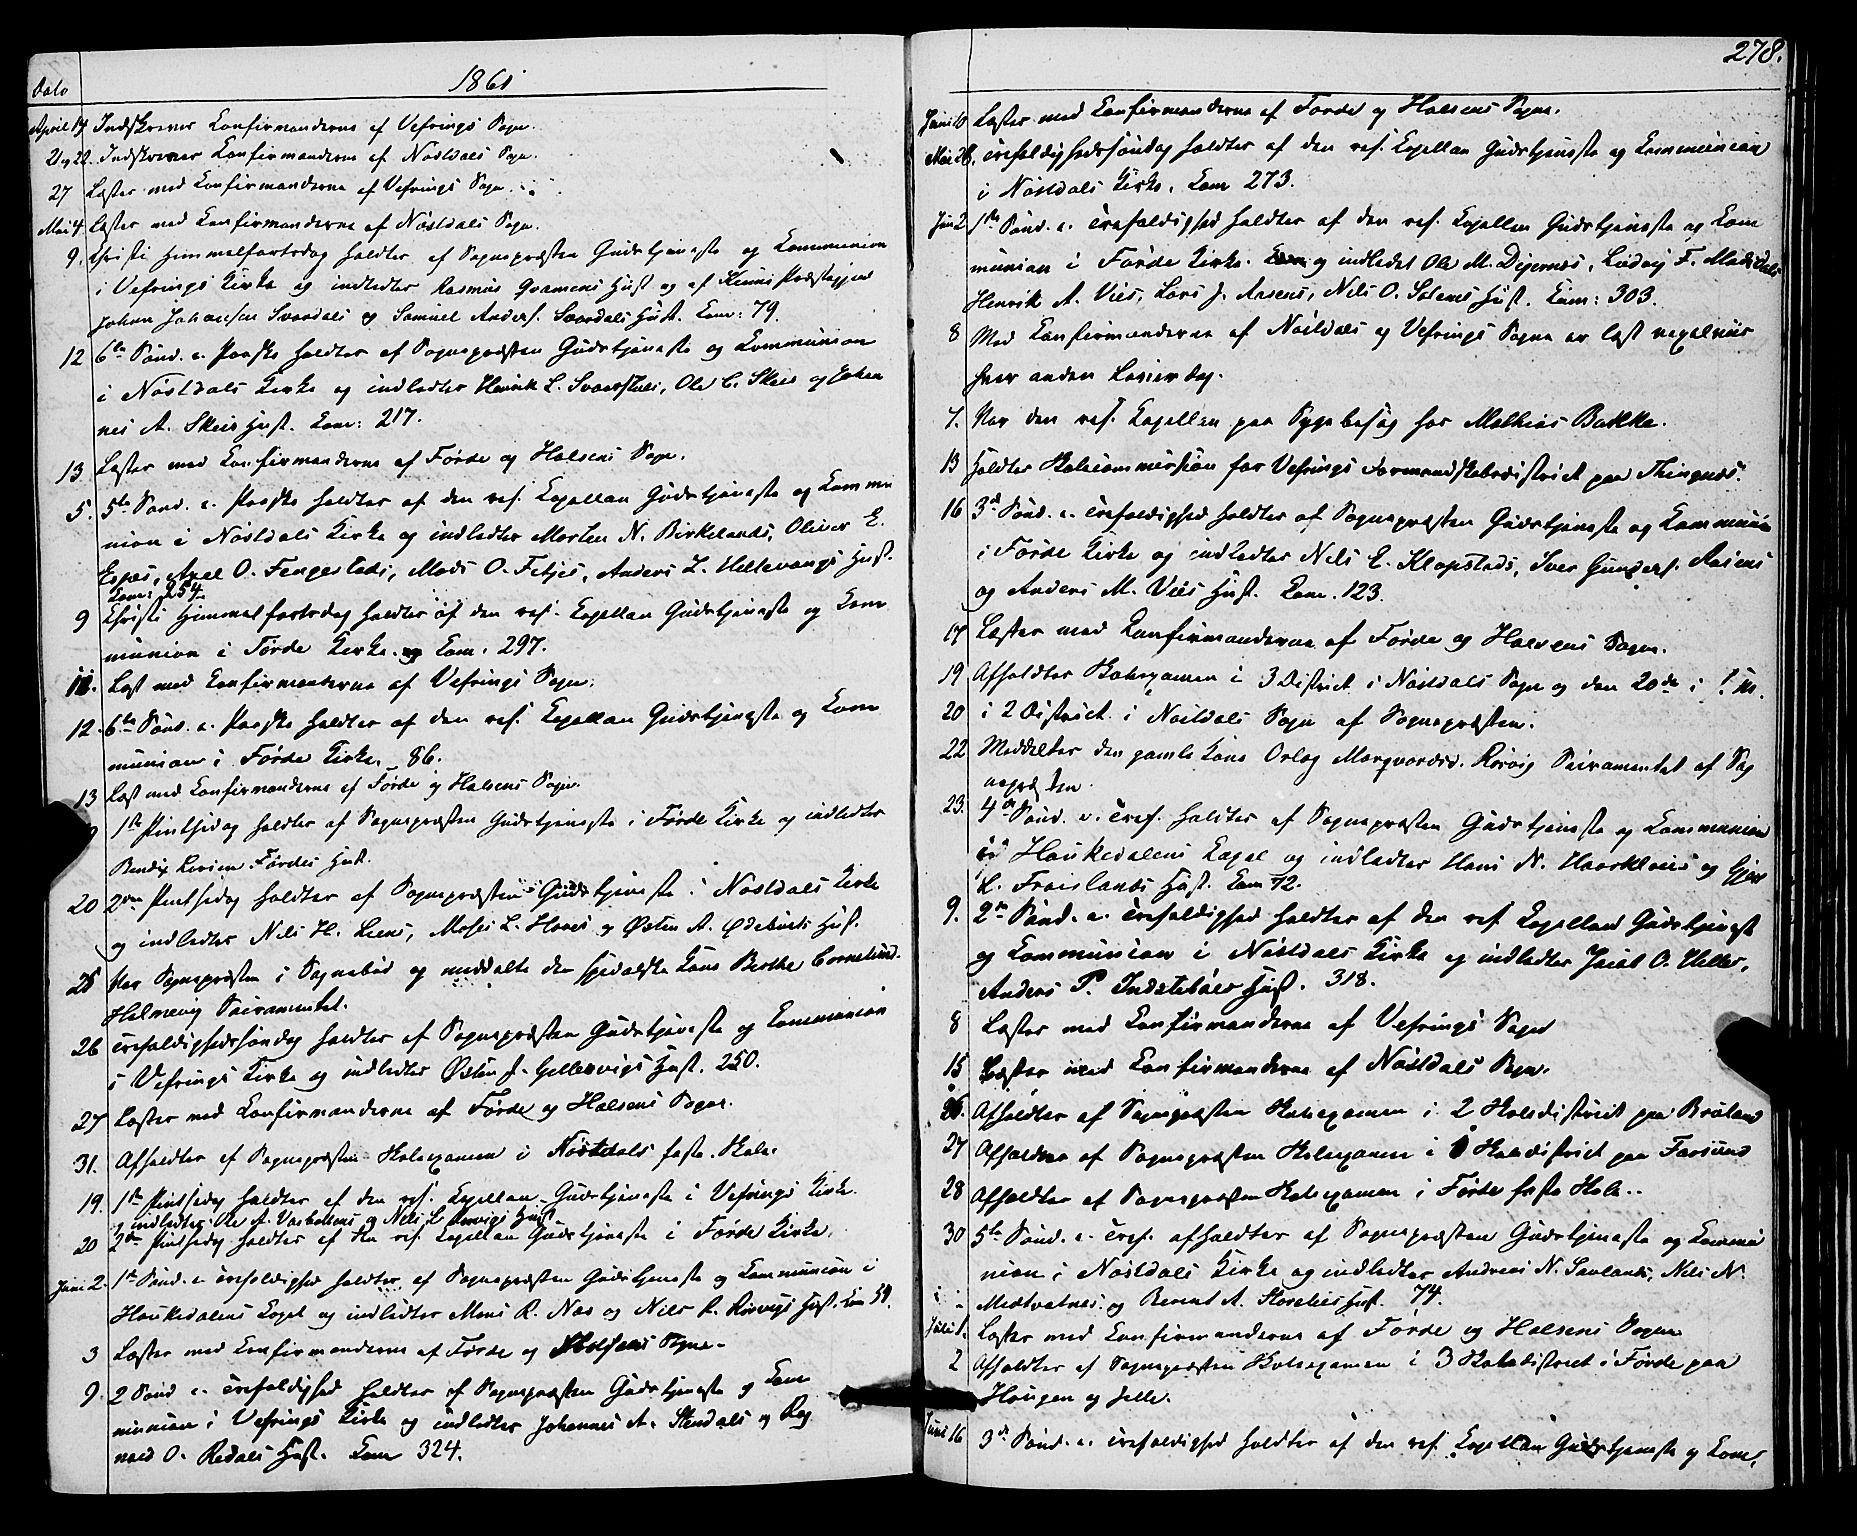 Dato
1861
April 17 Indskrever Konfirmanderne af Vefrings Sogn.
21 og 22. Indskrever Konfirmanderne af Nøstdals Sogn.
27 Læster med Konfirmanderne af Vefrings Sogn.
Mai 4. Læster med Konfirmanderne af Nøstdals Sogn.
9. Christi Himmelfartsdag holdter af Sognepræsten Gudstjeneste og Kommunion
i Vefrings Kirke og indledter Rasmus Hust og af
Johan Johansen Svardals og Samuel Anders. Svardals Hust. Kom: 79.
12 6te Sønd. e. Paaske holdter af Sognepræsten Gudstjeneste og Kommunion
i Nøstdals Kirke og indledter Henrik L. Ole C. Skeie og Johan
nes A. Skeis Hust. Kom: 217.
13 Læster med Konfirmanderne af Førde og Holsens Sogn.
5. 5te Sønd. e. Paaske holdter af den res. Kapellan Gudstjeneste og Kommu
nion i Nøstdals Kirke og indledter Morten N. Birkelands, Oliver E.
Espes, Axel O. Fengestads, Mads O. Fitjes, Anders L. Hellevangs Hust.
Kom: 254.
9 Christi Himmelfartsdag holdter af den res. Kapellan Gudstjeneste og Kom
munion i Førde Kirke. Kom. 297.
11. Læst med Konfirmanderne af Vefrings Sogn.
12. 6te Sønd. e. Paaske holdter af den res. Kapellan Gudstjeneste og Kom
munion i Førde Kirke. 86.
13 Læst med Konfirmanderne af Førde og Holsens Sogn.
1ste Pintsedag holdter af Sognepræsten Gudstjeneste i Førde Kirke og indledter
Bendix Førdes Hust.
20 2den Pintsedag holdter af Sognepræsten Gudstjeneste i Nøstdals Kirke
og indledter Nils H. Liens, Moses L. Hoves og Østen A. Hust.
25 Var Sognepræsten i Sognebud og meddelte den spedalske Kone Berthe Cornelius.
Holmevig Sacramentet.
26 Trefoldighedssøndag holdter af Sognepræsten Gudstjeneste og Kommunion
i Vefrings Kirke og indledter Østen J. Gellesvigs Hust. 250.
27 Læster med Konfirmanderne af Førde og Holsens Sogne.
31. Afholdter af Sognepræsten Skoleexamen i Nøstdals faste Skole.
19. 1ste Pintsedag holdter af den res. Kapellan Gudstjeneste i Vefrings Kirke.
og indledter Ole A. og Nils L. Hust
20 2den Pintsedag holdter af den res. Kapellan Gudstjeneste i Førde Kirke.
Juni 2. 1ste Sønd. e. Trefoldighed holdter af Sognepræsten Gudstjeneste og Kommunion i
Haukedalens Kapel og indledter Mons R. Næs og Nils R. Rørvigs Hust. Kom 59.
3 Læster med Konfirmanderne af Førde og Holsens Sogne.
9. 2 Sønd e. Trefoldighed holdter af Sognepræsten Gudstjeneste og Kom
munion i Vefrings Kirke og indledter Johannes A. Stendals og Rog
nald O. Redals Hust. Kom 324.
278.
Juni 10 Læster med Konfirmanderne af Førde og Holsens Sogne.
Mai 26. Trefoldighedssøndag holdter af den res. Kapellan Gudstjeneste og Kommunion
i Nøstdals Kirke. Kom 273.
Juni 2 1ste Sønd. e. Trefoldighed holdter af den res. Kapellan Gudstjeneste og Kom
munion i Førde Kirke. og indledet Ole M. Digernes, Ludvig F.
Henrik A. Vies, Lars J. Aasens, Nils O. Solems Hust. Kom: 303.
8 Med Konfirmanderne af Nøstdals og Vefrings Sogne er læst regelmæs
hver anden Løverdag.
7. Var den res. Kapellan paa Sygebesøg hos Mathias Bakke.
13 Holdter Skolecommission for Vefrings Formandskabsdistrict paa Thingnæs.
16 3die Sønd. e. Trefoldighed holdter af Sognepræsten Gudstjeneste og Kommunion
i Førde Kirke og indledter Nils E. Klopstads, Iver Gunders. Aasens
og Anders M. Vies Hust. Kom. 123.
17 Læster med Konfirmanderne af Førde og Holsens Sogne.
19 Afholdter Skoleexamen i 3 District i Nøstdals Sogn og den 20de i
20 i 2 District i Nøstdals Sogn af Sognepræsten.
22 Meddelter den gamle Kone Orlog Rørvig Sacramentet af Sog
nepræsten.
23. 4de Sønd. e. Tref. holdter af Sognepræsten Gudstjeneste og Kommunion
i Haukedalens Kapel og indledter Hans N. og
L. Froislands Hust. Kom 72.
9. 2den Sønd. e. Trefoldighed holdter af den res. Kapellan Gudstjenest
og Kommunion i Nøstdals Kirke og indledter Jacob O. Helles,
Anders P. Indrebøes Hust. 318.
8 Læster med Konfirmanderne af Vefrings Sogn
15 Læster med Konfirmanderne af Nøstdals Sogn.
Afholdter af Sognepræsten Skoleexamen i 2 Skoledistrict paa Bruland
27 Afholdter af Sognepræsten Skoleexamen i 1 Skoledistrict paa Farsund
28 Afholdter af Sognepræsten Skoleexamen i Førde faste Skole.
30 5te Sønd. e. Tref. afholdter af Sognepræsten Gudstjeneste og Kommu
nion i Nøstdals Kirke og indledter Andreas N. Savlands, Nils N.
Medtvatnes og Berent A. Hust. 74.
Juli 1. Læster med Konfirmanderne af Førde og Holsens Sogne
2 Afholdter af Sognepræsten Skoleexamen i 3 Skoledistrict i Førde paa
Haugen og Jelle.
Juni 16 3die Sønd. e. Trefoldighed holdter af den res. Kapellan Gudstjeneste og Kom.